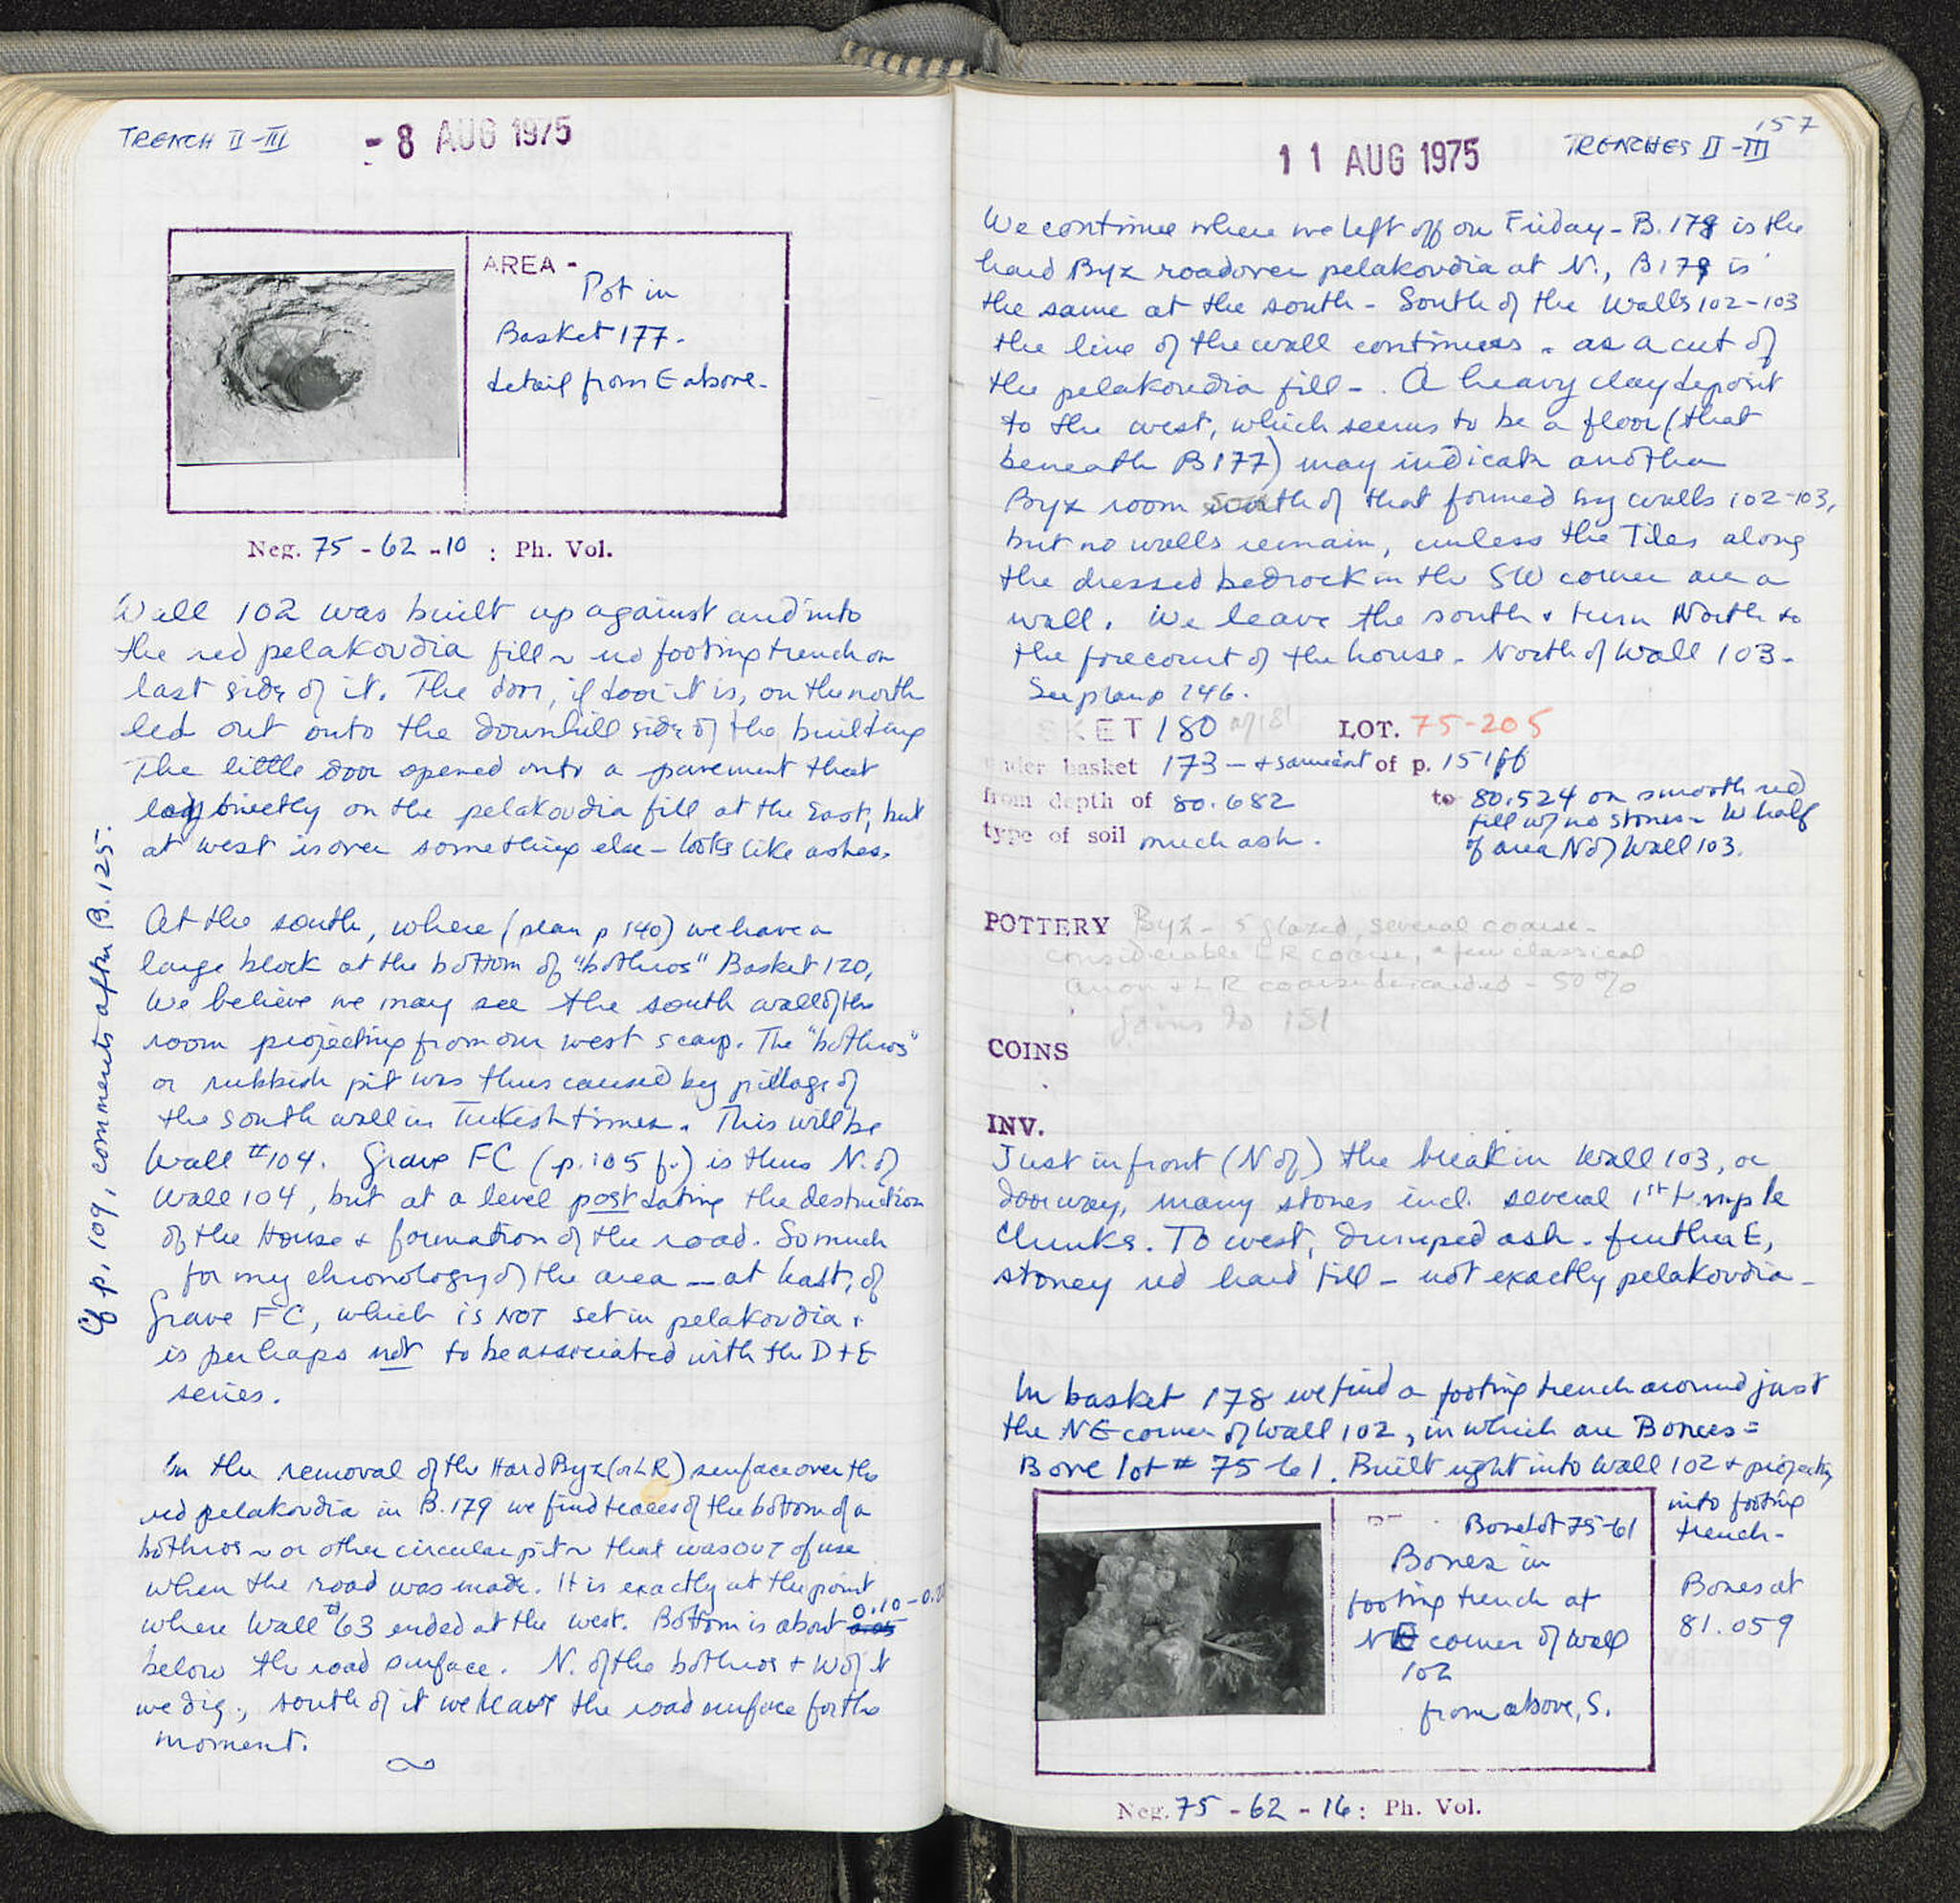 TRENCH II-III
- 8 AUG 1975
AREA -
Pot in
Basket 177.
detail from E above.
Neg. 75 - 62 - 10 : Ph. Vol.
Wall 102 was built up against and into
the red pelakoudia fill ~ no footing trench on
last side of it. The door, if door it is, on the north
led out onto the downhill side of the building
The little door opened onto a pavement that
lay directly on the pelakoudia fill at the East, but
at west is over something else - looks like ashes.
At the south, where (plan p 140) we have a
large block at the bottom of "bothros" Basket 120,
We believe we may see the south wall of the
room projecting from our west scarp. The "bothros"
or rubbish pit was thus caused by pillage of
the south wall in Turkish times. This will be
Wall #104. Grave FC (p. 105 f.) is thus N. of
Wall 104, but at a level post dating the destruction
of the House & formation of the road. So much
for my chronology of the area — at least, of
Grave FC, which is NOT set in pelakoudia &
is perhaps not to be associated with the D+E
series.
Cf p. 109, comments after B. 125.
In the removal of the Hard Byz (or LR) surface over the
red pelakoudia in B. 179 we find traces of the bottom of a
bothros ~ or other circular pit ~ that was out of use
when the road was made. It is exactly at the point
where Wall #63 ended at the west. Bottom is about 0.05 0.10-0.2
below the road surface. N. of the bothros + W of it
we dig, south of it we leave the road surface for the
moment.
157
11 AUG 1975
TRENCHES II-III
We continue where we left off on Friday - B. 178 is the
hard Byz road over pelakoudia at N., B 179 is
the same at the south - South of the Walls 102-103
the line of the wall continues - as a cut of
the pelakoudia fill -. A heavy clay deposit
to the west, which seems to be a floor (that
beneath B177) may indicate another
Byz room south of that formed by walls 102-103,
but no walls remain, unless the Tiles along
the dressed bedrock in the SW corner are a
wall. We leave the south & turn North to
the forecourt of the house - North of Wall 103 -
See plan p 146.
SKET 180 w/181 LOT. 75-205
under basket 173 - of p. 151ff
from depth of 80.682 to 80.524 on smooth red
fill w/ no stones ~ W half
of area N of Wall 103.
type of soil much ash.
POTTERY Byz - 5 glazed, several coarse -
considerable LR coarse, a few classical
LR coarse discarded - 50%
Joins to 181
COINS
INV.
Just in front (N of) the break in Wall 103, or
doorway, many stones incl. several 1st temple
Chunks. To west, dumped ash - further E,
stoney red hard fill - not exactly pelakoudia -
In basket 178 we find a footing trench around just
the NE corner of Wall 102, in which are Bones =
Bone lot # 75-61. Built right into Wall 102 & projecting
into footing
trench -
Bones at
81.059
Bone lot 75-61
Bones in
footing trench at
NE corner of Wall
102
from above, S.
Neg. 75 - 62 - 16 : Ph. Vol.